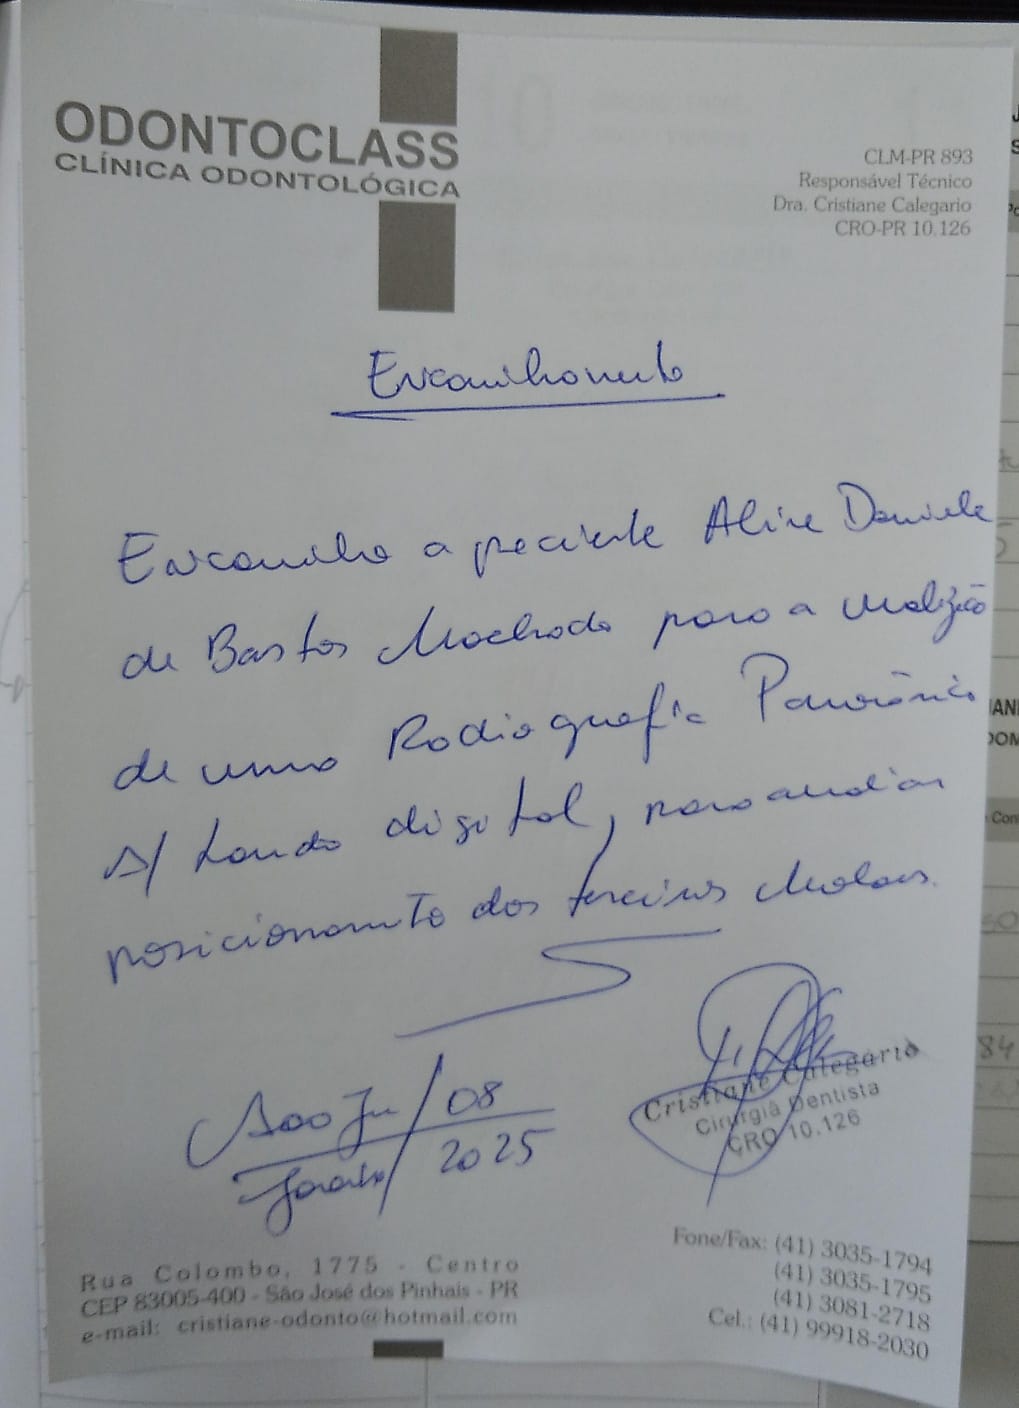 ODONTOCLASS
CLÍNICA ODONTOLÓGICA
CLM-PR 893
Responsável Técnico
Dra. Cristiane Calegario
CRO-PR 10.126
Encaminhamento
Encaminho a paciente Aline Daniele
de Bastos Machado para a realização
de uma Radiografia Panorâmica
s/ Laudo digital, para avaliar
posicionamento dos terceiros Molares.
São José / 08
2025
Cristiane Calegario
Cirurgiã Dentista
CRO 10.126
Rua Colombo, 1775 - Centro
CEP 83005-400 - São José dos Pinhais - PR
e-mail: cristiane-odonto@hotmail.com
Fone/Fax: (41) 3035-1794
(41) 3035-1795
(41) 3081-2718
Cel.: (41) 99918-2030